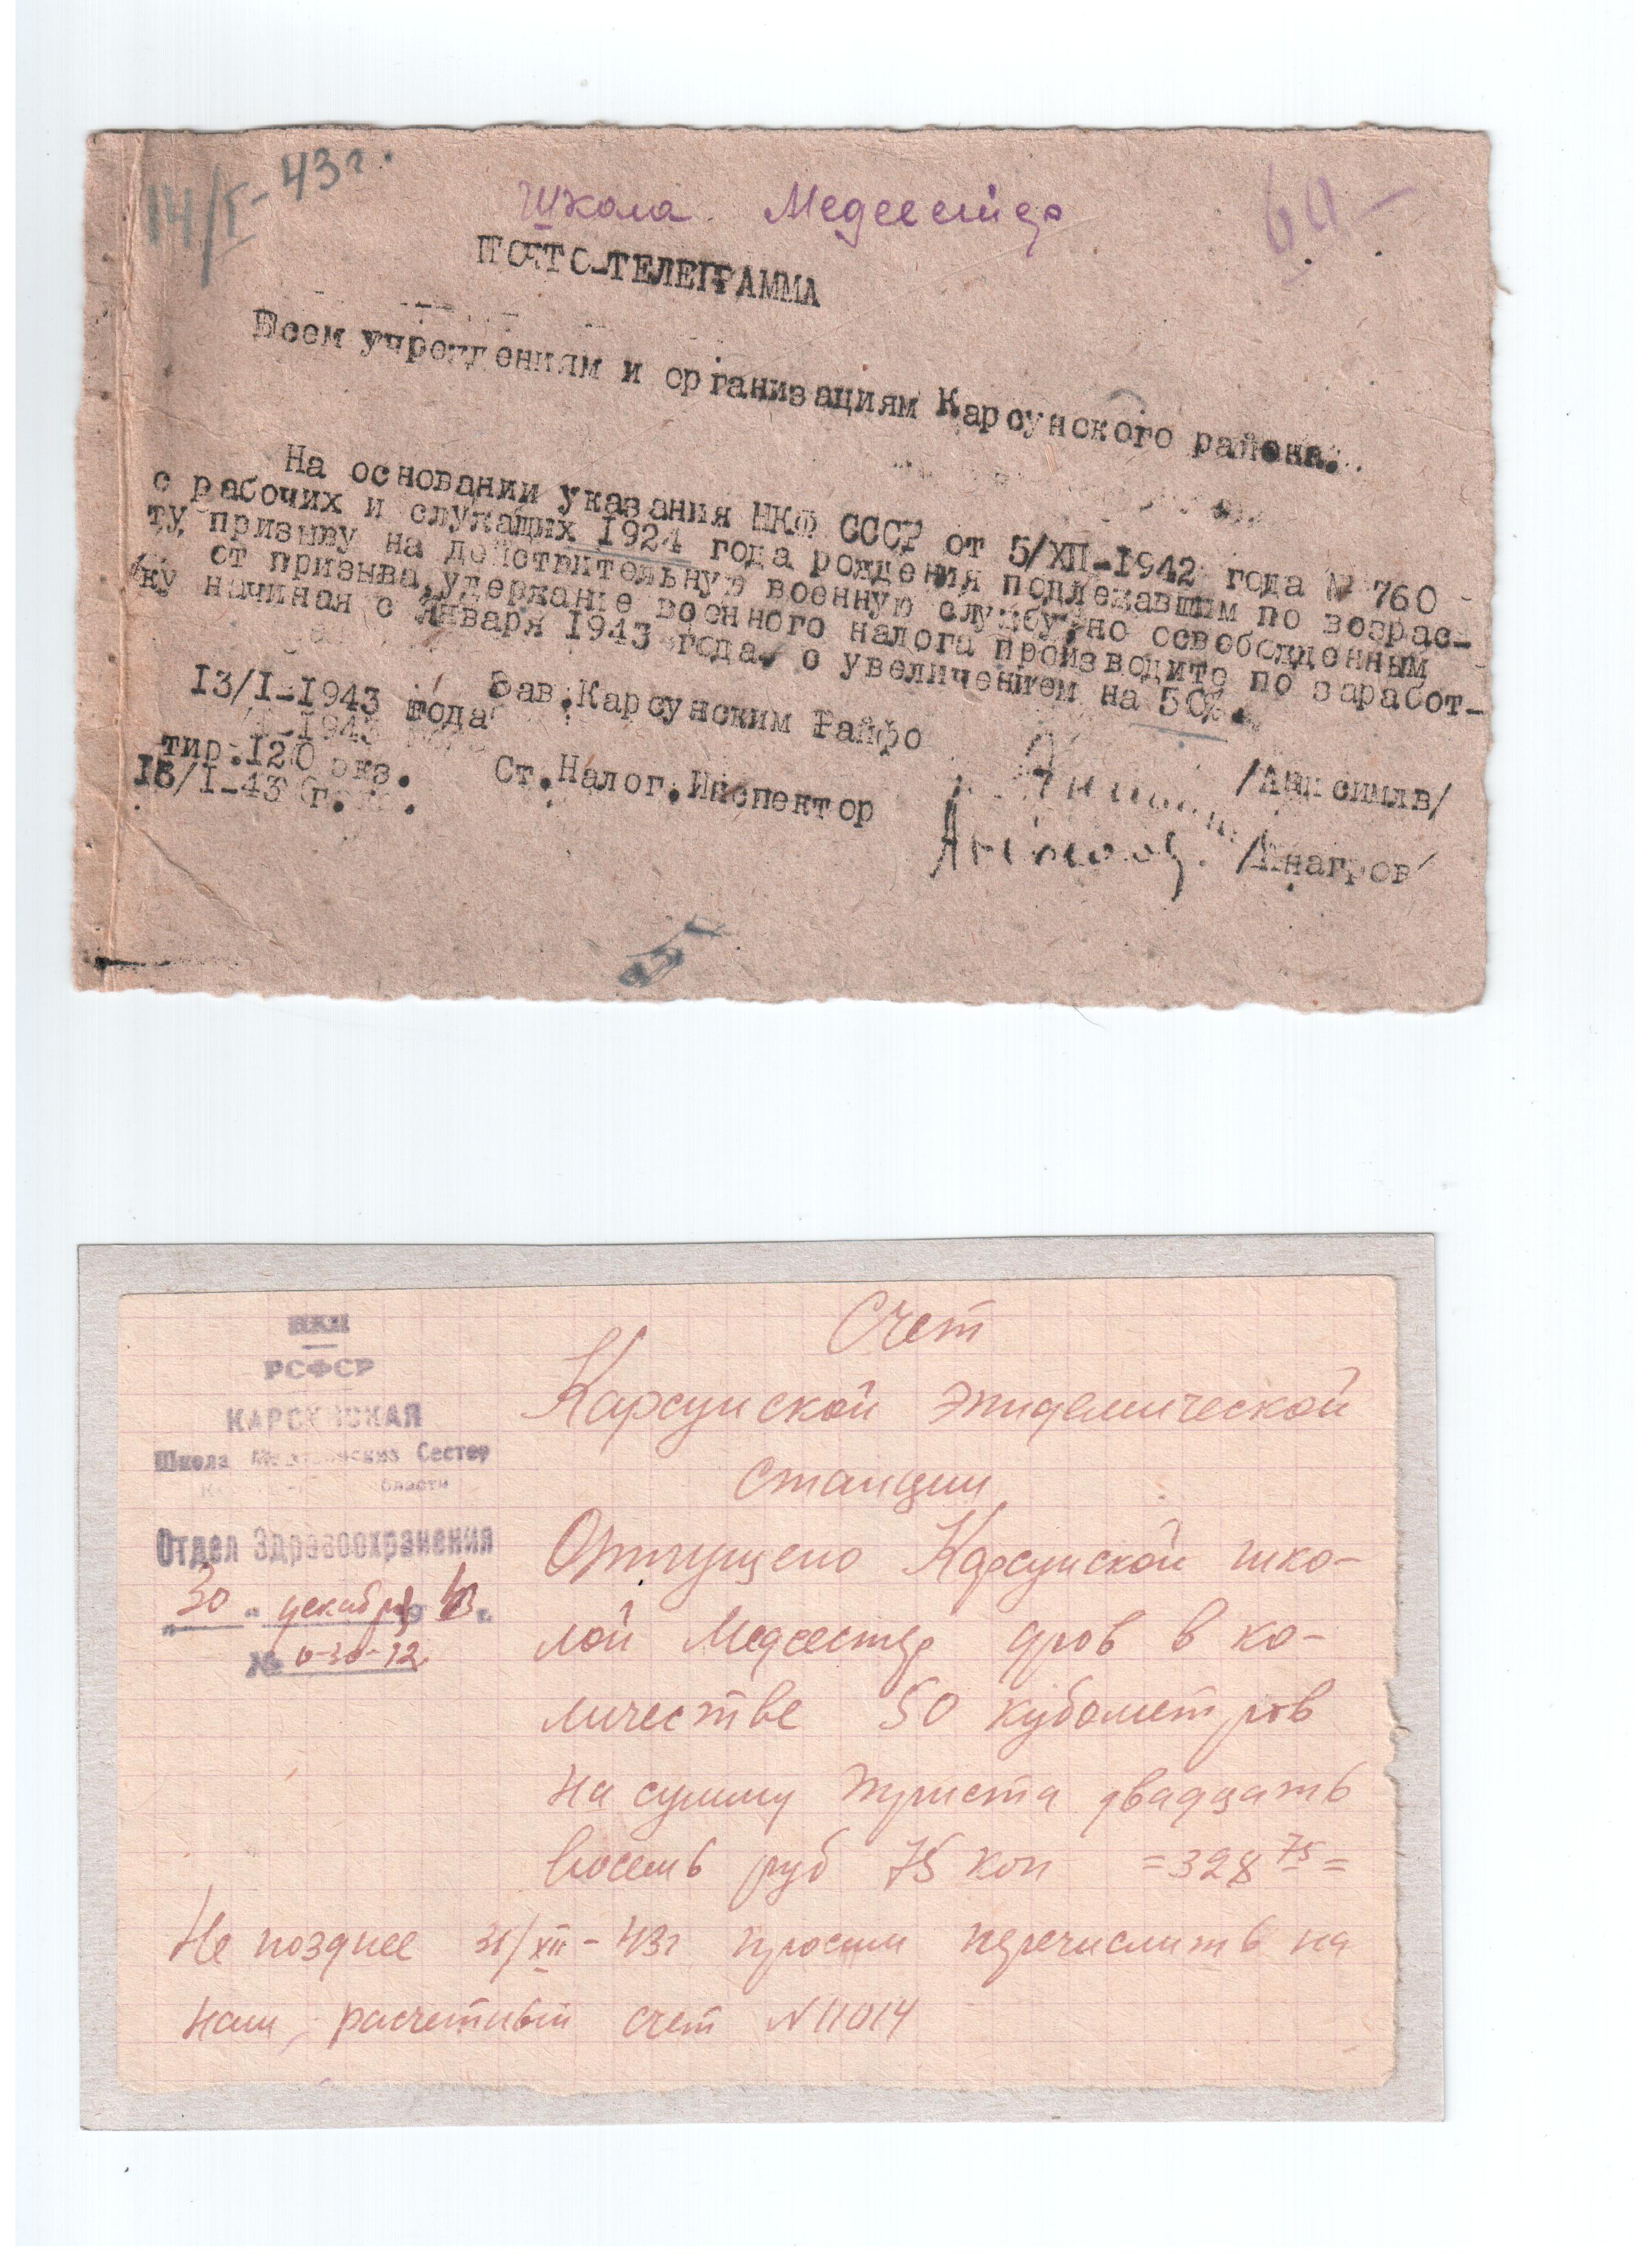 14/I-43г.
Школа Медсестер
ПОЧТО-ТЕЛЕГРАММА
Всем учреждениям и организациям Карсунского района.
На основании указания НКФ СССР от 5/XII-1942 года № 760
с рабочих и служащих 1924 года рождения подлежавшим по возрас-
ту, призыву на действительную военную службу, но освобожденным
от призыва, удержание военного налога производите по заработ-
ку начиная с января 1943 года с увеличением на 50%.
13/I-1943 года
Зав.Карсунским Райфо
/Анисимов/
тир.120 экз.
15/I-43 г.
Ст.Налог.Инспектор
/Анагров/
НКЗ
РСФСР
КАРСУНСКАЯ
Школа Медицинских Сестер
области
Отдел Здравоохранения
"30" декабря 1943 г.
№
Счет
Карсунской эпидемической
станции
Отпущено Карсунской шко-
лой Медсестер дров в ко-
личестве 50 кубометров
на сумму триста двадцать
восемь руб 75 коп =328 75=
Не позднее 31/XII-43г просим перечислить на
наш расчетный счет N 11014